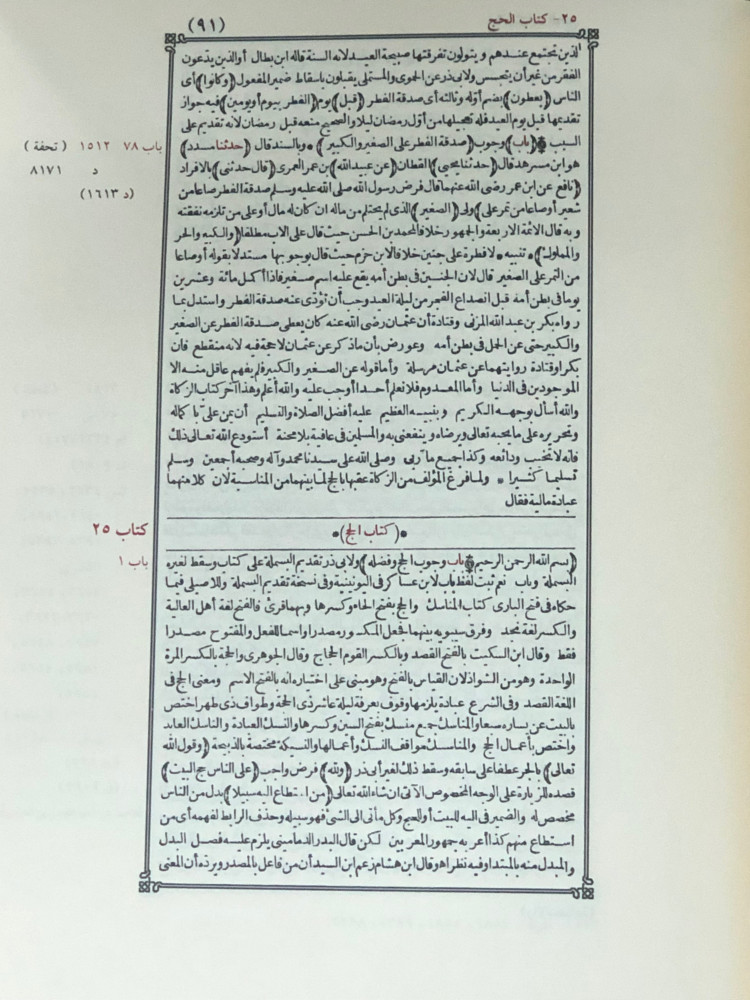 ٢٥- كتاب الحج
(٩١)
الذين تجتمع عندهم ويتولون تفرقتها صبيحة العيد لانه السنة قاله ابن بطال أو الذين يدّعون
الفقر من غير أن يتجسس ولابي ذر عن الحموى والمستملى يقبلون باسقاط ضمير المفعول (وكانوا) أى
الناس (يعطون) بضم أوّله وثالثه أى صدقة الفطر (قبل) يوم (الفطر بيوم أو يومين) فيه جواز
تقديمها قبل يوم العيد فله تعجيلها من أوّل رمضان ليلا والصحيح منعه قبل رمضان لانه تقديم على
السبب (باب) وجوب (صدقة الفطر على الصغير والكبير) * وبالسند قال (حدثنا مسدد)
باب ٧٨ ١٥١٢ (تحفة)
د ٨١٧١
(د ١٦١٣)
هو ابن مسرهد قال (حدثنا يحيى) القطان (عن عبيد الله) بن عمر العمرى (قال حدثنى) بالافراد
(نافع عن ابن عمر رضى الله عنهما قال فرض رسول الله صلى الله عليه وسلم صدقة الفطر صاعا من
شعير أو صاعا من تمر على) ولى (الصغير) الذى لم يحتلم من ماله ان كان له مال أو على من تلزمه نفقته
وبه قال الائمة الاربعة والجمهور خلافا لمحمد بن الحسن حيث قال على الاب مطلقا (والكبير والحر
والمملوك) * تنبيه * لا فطرة على جنين خلافا لابن حزم حيث قال بوجوبها مستدلا بقوله أو صاعا
من التمر على الصغير قال لان الجنين فى بطن أمه يقع عليه اسم صغير فاذا أكمل مائة وعشرين
يوما فى بطن أمه قبل انصداع الفجر من ليلة العيد وجب أن تؤدّى عنه صدقة الفطر واستدل بما
رواه بكر بن عبد الله المزنى وقتادة أن عثمان رضى الله عنه كان يعطى صدقة الفطر عن الصغير
والكبير حتى عن الحمل فى بطن أمه وعورض بأن ما ذكر عن عثمان لا حجة فيه لانه منقطع فان
بكرا وقتادة روايتهما عن عثمان مرسلة وأما قوله عن الصغير والكبير فلم يفهم عاقل منه الا
الموجودين فى الدنيا وأما المعدوم فلا نعلم أحدا أوجب عليه والله أعلم وهذا آخر كتاب الزكاة
والله أسأل بوجهه الكريم وبنبيه العظيم عليه أفضل الصلاة والتسليم أن يمنّ علىّ باكماله
وتحريره على ما يحبه تعالى ويرضاه وينفعنى به والمسلمين فى عافية بلا محنة أستودع الله تعالى ذلك
فانه لا تخيب ودائعه وكذا جميع مآربى وصلى الله على سيدنا محمد وآله وصحبه أجمعين وسلم
تسليما كثيرا * ولما فرغ المؤلف من الزكاة عقبها بالحج لما بينهما من المناسبة لان كلا منهما
عبادة مالية فقال
كتاب ٢٥
*(كتاب الحج)*
باب ١
(بسم الله الرحمن الرحيم باب وجوب الحج وفضله) ولابى ذر تقديم البسملة على كتاب وسقط لغيره
البسملة وباب نعم ثبت لفظ باب لابن عساكر فى اليونينية وفى نسخة تقديم البسملة وللاصيلى فيما
حكاه فى فتح البارى كتاب المناسك والحج بفتح الحاء وكسرها وبهما قرئ فالفتح لغة أهل العالية
والكسر لغة نجد وفرق سيبويه بينهما فجعل المكسور مصدرا واسما للفعل والمفتوح مصدرا
فقط وقال ابن السكيت بالفتح القصد وبالكسر القوم الحجاج وقال الجوهرى والحجة بالكسر المرة
الواحدة وهو من الشواذ لان القياس بالفتح وهو مبنى على اختياره انه بالفتح الاسم ومعنى الحج فى
اللغة القصد وفى الشرع عبادة يلزمها وقوف بعرفة ليلة عاشر ذى الحجة وطواف ذى طهر اختص
بالبيت عن يساره سبعا والمناسك جمع منسك بفتح السين وكسرها والنسك العبادة والناسك العابد
واختص بأعمال الحج والمناسك مواقف النسك وأعمالها والنسيكة مختصة بالذبيحة (وقول الله
تعالى) بالجر عطفا على سابقه وسقط ذلك لغير أبى ذر (ولله) فرض واجب (على الناس حج البيت)
قصده للزيارة على الوجه المخصوص الآتى ان شاء الله تعالى (من استطاع اليه سبيلا) بدل من الناس
مخصص له والضمير فى اليه للبيت أو للحج وكل مأتى الى الشئ فهو سبيله وحذف الرابط لفهمه أى من
استطاع منهم كذا أعربه جمهور المعربين لكن قال البدر الدمامينى يلزم عليه فصل البدل
والمبدل منه بالمبتدا وفيه نظر اهـ وقال ابن هشام زعم ابن السيد أن من فاعل بالمصدر ويردّه أن المعنى